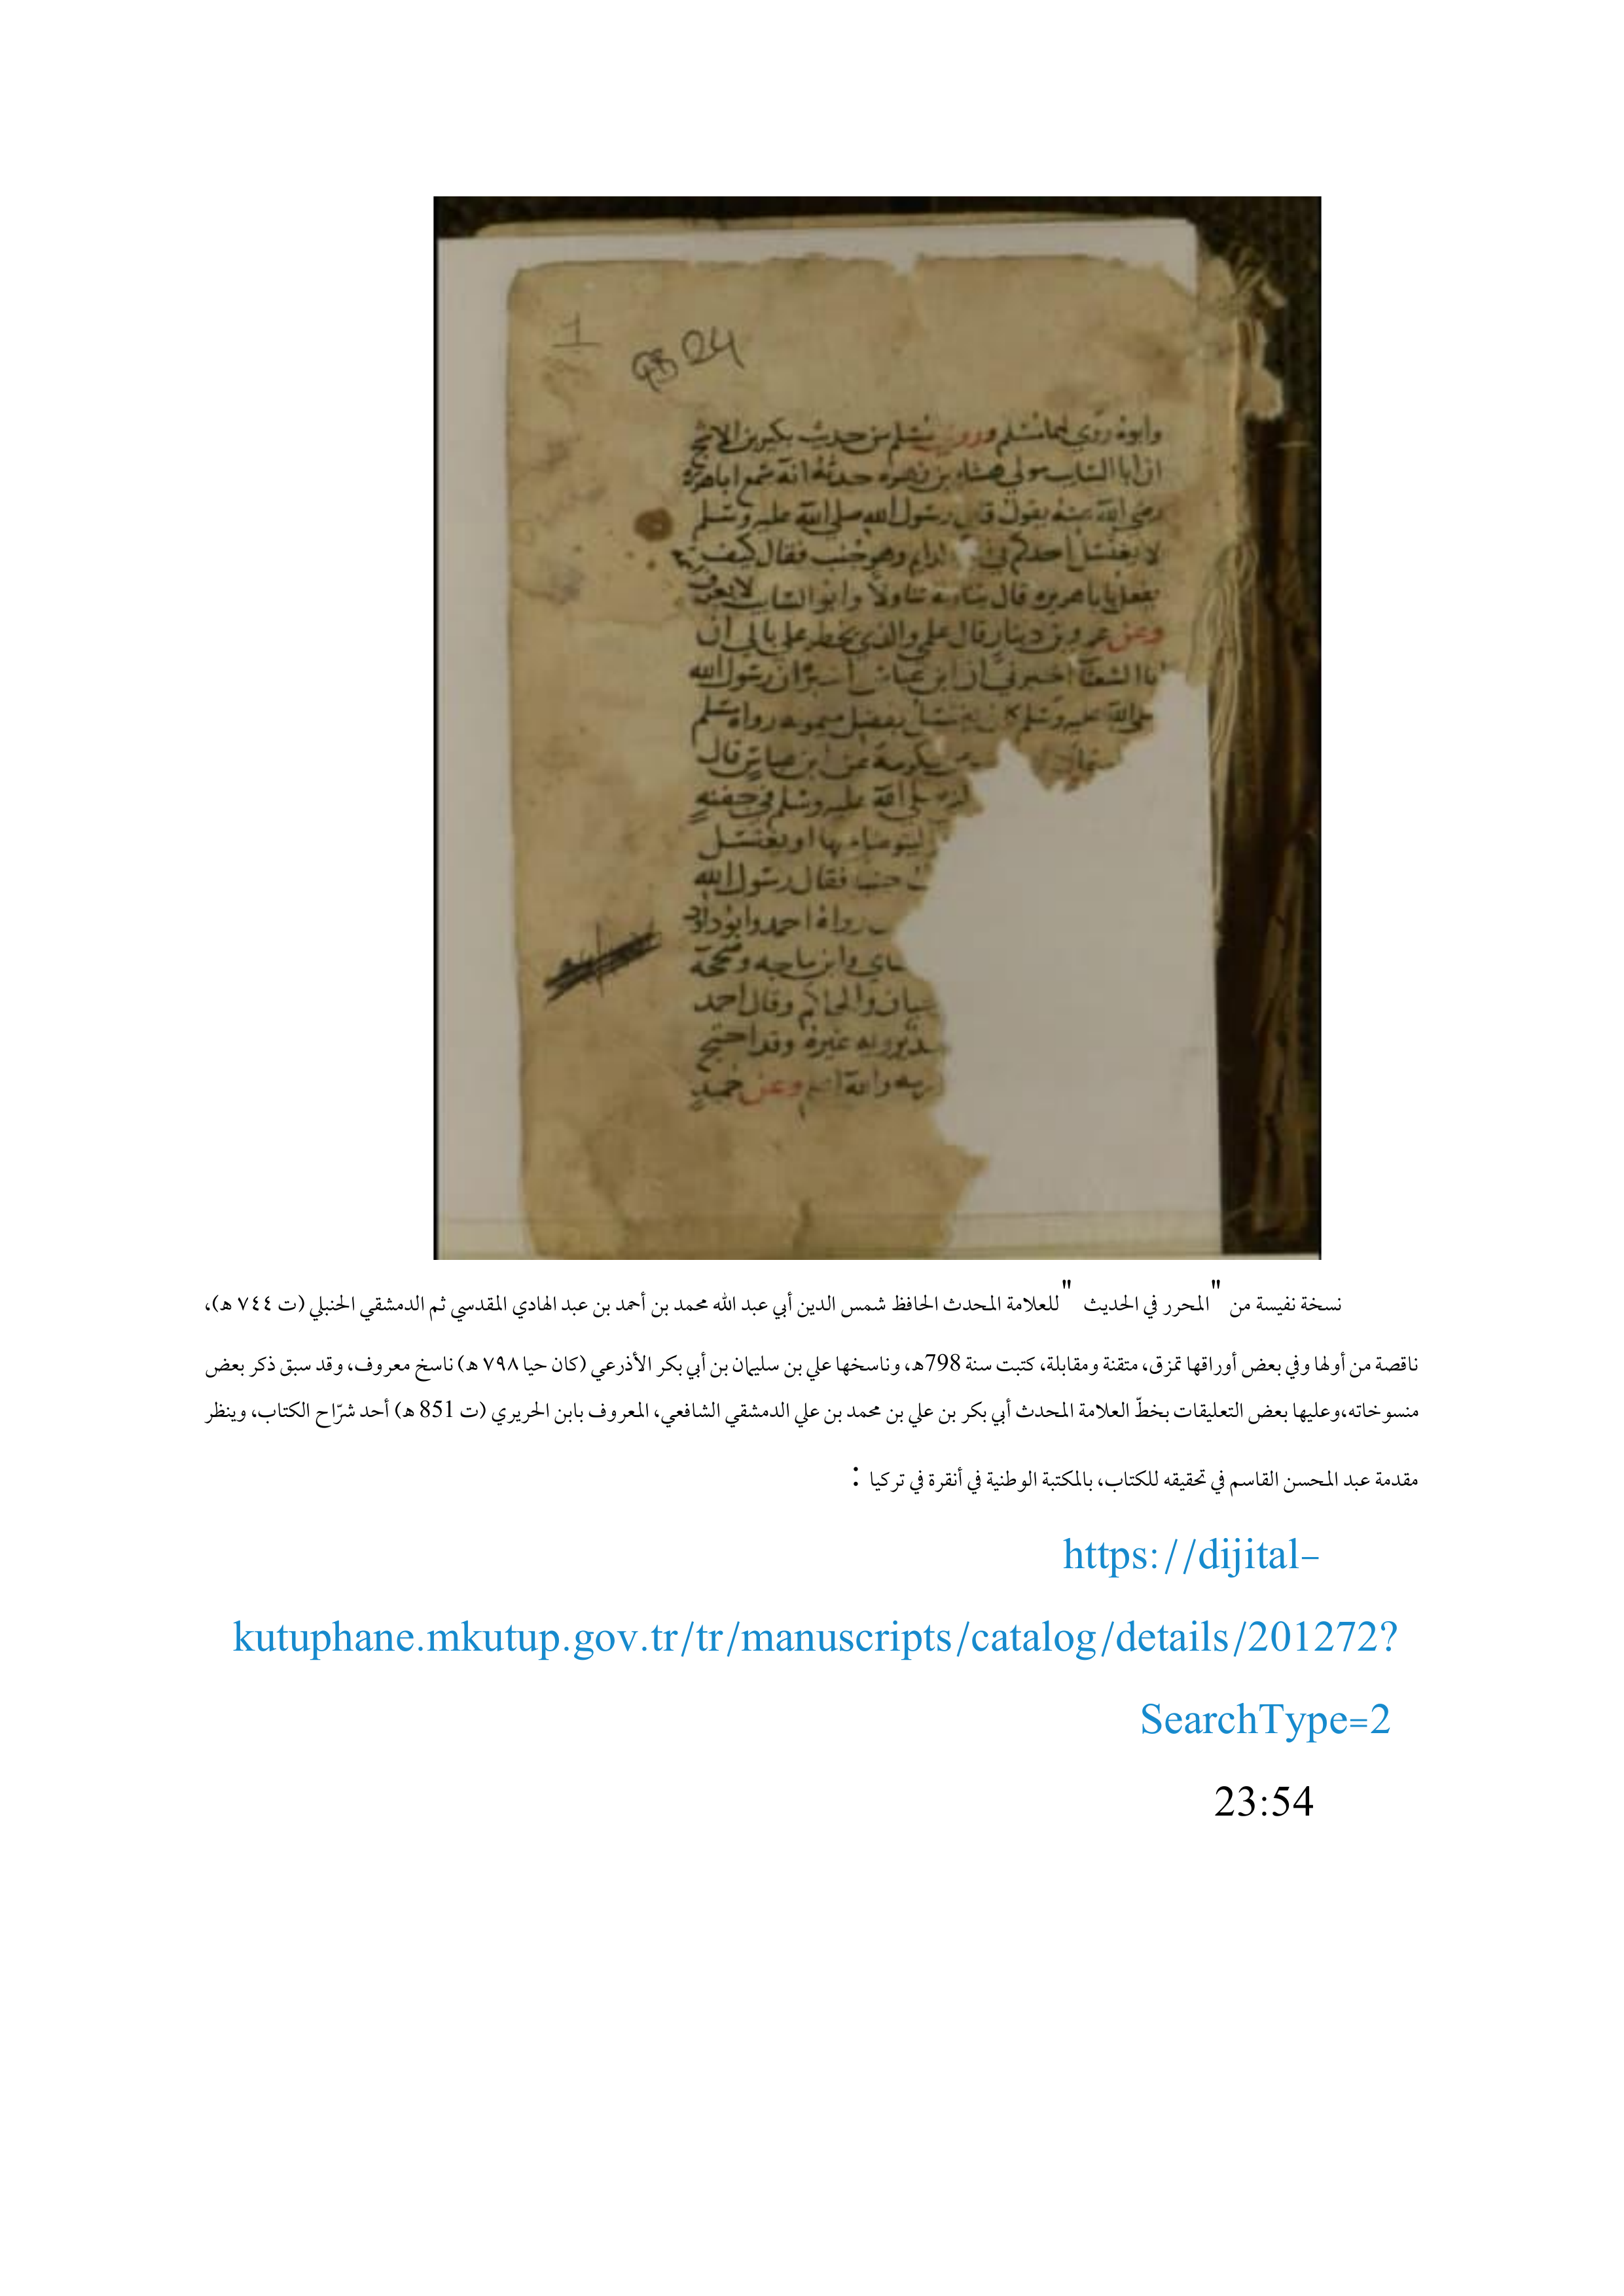 1
9824
وابوه روى لهما مسلم وروى مسلم من حديث بكير بن الاشج
ان ابا السايب مولى هشام بن زهره حدثه انه سمع اباهريرة
رضي الله عنه يقول قال رسول الله صلى الله عليه وسلم
لا يغتسل احدكم في الدايم وهو جنب فقال كيف
يفعل يا با هريره قال يتناوله تناولا وابو السايب لا يعرف
وعن عمرو بن دينار قال علمي والذي يخطر على بالي ان
ابا الشعثا اخبرني ان ابن عباس اخبره ان رسول الله
صلى الله عليه وسلم كان يغتسل بفضل ميمونه رواه مسلم
عكرمة عن ابن عباس قال
صلى الله عليه وسلم في جفنه
ليتوضا منها او يغتسل
جنبا فقال رسول الله
رواه احمد وابو داود
وابن ماجه وصححه
والحاكم وقال احمد
يرويه غيره وقد احتج
والله اعلم وعن حميد
نسخة نفيسة من "المحرر في الحديث" للعلامة المحدث الحافظ شمس الدين أبي عبد الله محمد بن أحمد بن عبد الهادي المقدسي ثم الدمشقي الحنبلي (ت ٧٤٤ هـ)،
ناقصة من أولها وفي بعض أوراقها تمزق، متقنة ومقابلة، كتبت سنة 798هـ، وناسخها علي بن سليمان بن أبي بكر الأذرعي (كان حيا ٧٩٨ هـ) ناسخ معروف، وقد سبق ذكر بعض
منسوخاته،وعليها بعض التعليقات بخطّ العلامة المحدث أبي بكر بن علي بن محمد بن علي الدمشقي الشافعي، المعروف بابن الحريري (ت 851 هـ) أحد شرّاح الكتاب، وينظر
مقدمة عبد المحسن القاسم في تحقيقه للكتاب، بالمكتبة الوطنية في أنقرة في تركيا :
https://dijital-
kutuphane.mkutup.gov.tr/tr/manuscripts/catalog/details/201272?
SearchType=2
23:54